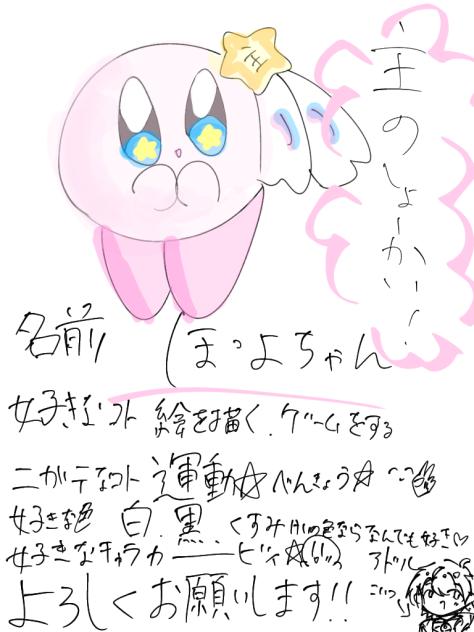 主のしょーかい!
主
名前 ほっよちゃん
好きなコト 絵を描く、ゲームをする
ニガテなコト 運動☆べんきょう☆
好きな色 白、黒、くすみ系の色ならなんでも好き♡
好きなキャラ カービィ☆ アドル
こいつ
よろしくお願いします!!